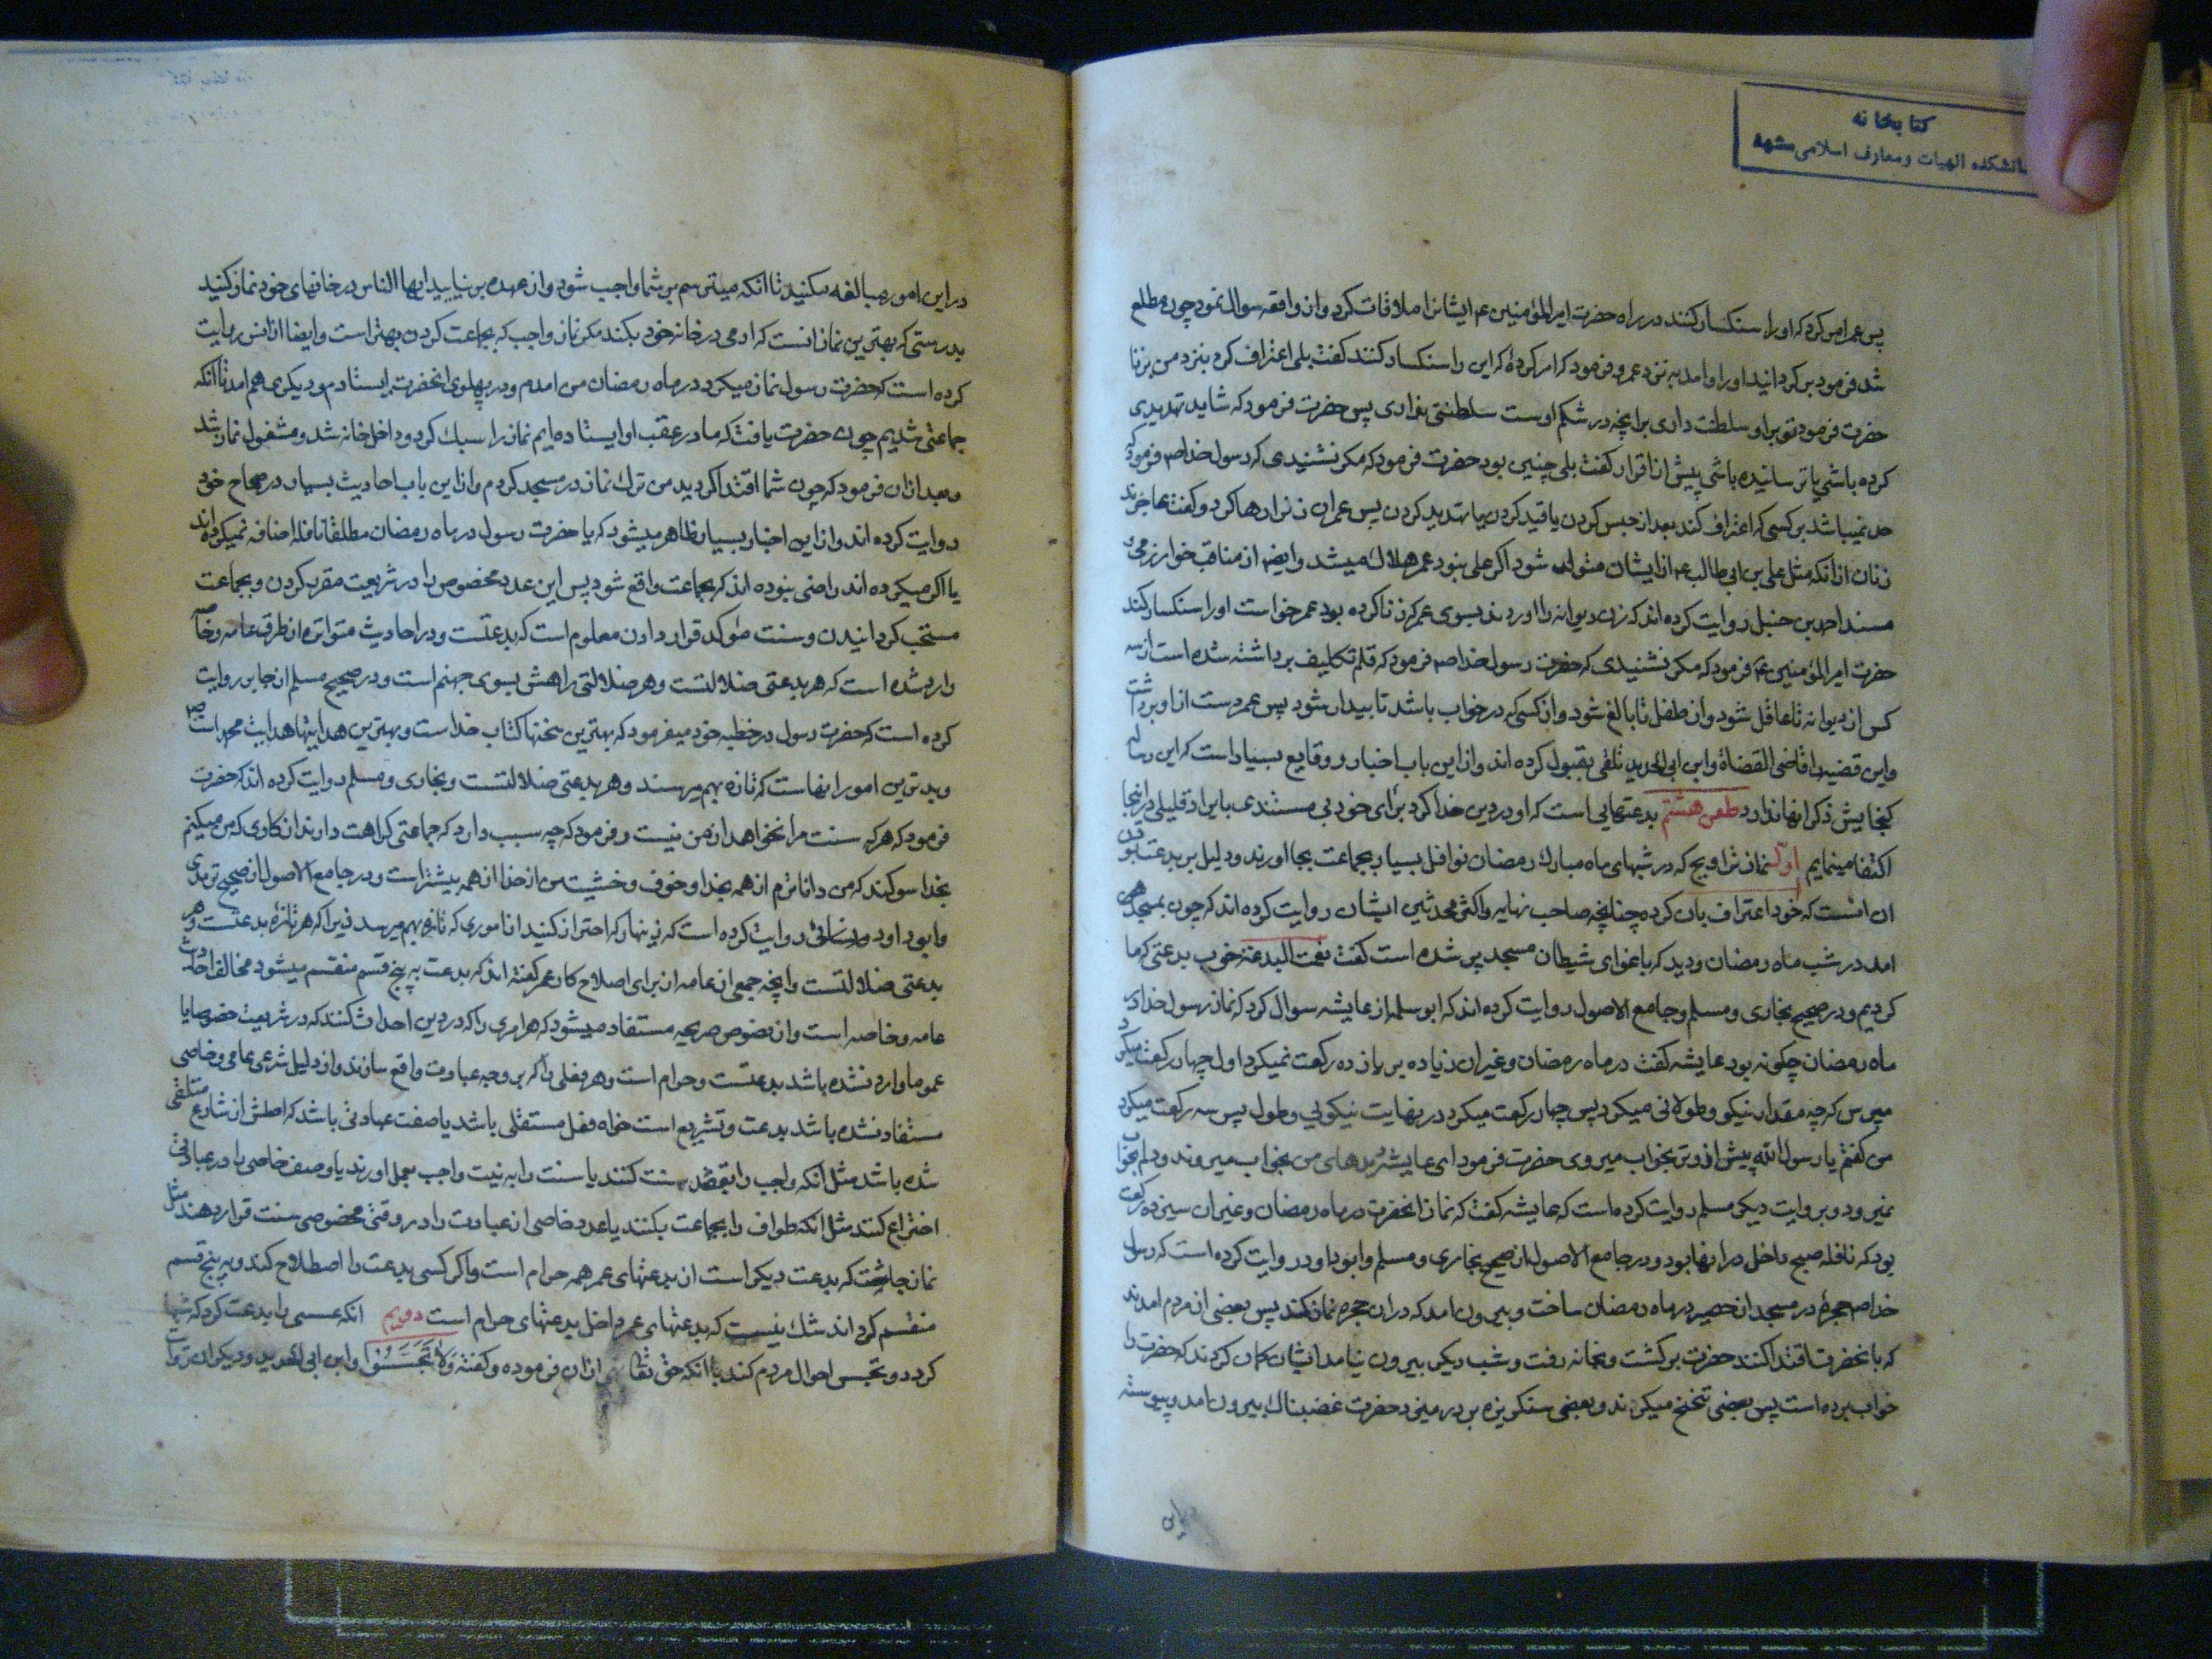 کتابخانه
دانشکده الهیات ومعارف اسلامی مشهد
پس عمر امر کرد که او را سنکسار کنند در راه حضرت امیر المؤمنین عم ایشانرا ملاقات کرد و ان واقعه سوال نمود چون مطلع
شد فرمود برکردانید او را و امد به نزد عمر و فرمود که امر کردۀ که این را سنکسار کنند کفت بلی اعتراف کرد بنزد من بزنا
حضرت فرمود تو بر او سلطنت داری بر انچه در شکم اوست سلطنتی نداری پس حضرت فرمود که شاید تهدیدی
کرده باشی یا ترسانیده باشی پیش از اقرار کفت بلی چنین بود حضرت فرمود که مکر نشنیدی که رسول خدا صم فرمود که
حد نمیباشد بر کسی که اعتراف کند بعد از حبس کردن یا قید کردن یا تهدید کردن پس عمر ان زنرا رها کرد و کفت عاجزند
زنان از انکه مثل علی بن ابی طالب عم از ایشان متولد شود اکر علی نبود عمر هلاک میشد وایضم از مناقب خوارزمی و
مسند احمد بن حنبل روایت کرده اند که زن دیوانه را اوردند بسوی عمر که زنا کرده بود عمر خواست او را سنکسار کند
حضرت امیر المؤمنین عم فرمود که مکر نشنیدی که حضرت رسول خدا صم فرمود که قلم تکالیف برداشته شده است از سه
کس از دیوانه تا عاقل شود و از طفل تا بالغ شود و از کسی که در خواب باشد تا بیدار شود پس عمر دست از او برداشت
واین قضیه را قاضی القضاة وابن ابی الحدید تلقی بقبول کرده اند و از این باب اخبار و وقایع بسیار است که این رساله
کنجایش ذکر انها ندارد طعن هشتم بدعتهایی است که او در دین خدا کرد برای خود بی مستندی بایراد قلیلی در اینجا
اکتفا مینمایم اول نماز تراویح که در شبهای ماه مبارک رمضان نوافل بسیار بجماعت بجا اورند و دلیل بر بدعت بودن
ان انست که خود اعتراف بان کرده چنانچه صاحب نهایه و اکثر محدثین ایشان روایت کرده اند که چون بمسجد
امد در شب ماه رمضان و دید که باغوای شیطان مسجد پر شده است کفت نعمت البدعة خوب بدعتی که ما
کردیم و در صحیح بخاری و مسلم و جامع الاصول روایت کرده اند که ابو سلمه از عایشه سوال کرد که نماز رسول خدا در
ماه رمضان چکونه بود عایشه کفت در ماه رمضان و غیر ان زیاده بر یازده رکعت نمیکرد اول چهار رکعت میکرد
مپرس که چه مقدار نیکو و طولانی میکرد پس چهار رکعت میکرد در نهایت نیکویی و طول پس سه رکعت میکرد
من کفتم یا رسول الله پیش از وتر بخواب میروی حضرت فرمود ای عایشه دیدهای من بخواب میروند و دلم بخواب
نمیرود و بروایت دیکر مسلم روایت کرده است که عایشه کفت که نماز انحضرت در ماه رمضان و غیر ان سیزده رکعت
بود که نافله صبح داخل در انها بود و در جامع الاصول از صحیح بخاری و مسلم و ابو داود روایت کرده است که رسول
خدا صم حجرۀ در مسجد از حصیر در ماه رمضان ساخت و بیرون امد که در ان حجره نماز کند پس بعضی از مردم امدند
که بانحضرت اقتدا کنند حضرت برکشت و بخانه رفت و شب دیکر بیرون نیامد ایشان کمان کردند که حضرت را
خواب برده است پس بعضی تنحنح میکردند و بعضی سنکریزه بر در میزد حضرت غضبناک بیرون امد و پیوسته
در این امور مبالغه میکنید تا انکه میترسم بر شما واجب شود و از عهده بر نیایید ایها الناس در خانهای خود نماز کنید
بدرستی که بهترین نماز انست که ادمی در خانه خود بکند مکر نماز واجب که بجماعت کردن بهتر است وایضا از انس روایت
کرده است که حضرت رسول نماز میکرد در ماه رمضان من امدم و در پهلوی انحضرت ایستادم و دیکری هم امد تا انکه
جماعتی شدیم چون حضرت یافت که ما در عقب او ایستاده ایم نماز را سبک کرد و داخل خانه شد و مشغول نماز شد
و بعد از ان فرمود که چون شما اقتدا کردید من ترک نماز در مسجد کردم و از این باب احادیث بسیار در صحاح خود
روایت کرده اند و از این اخبار بسیار ظاهر میشود که یا حضرت رسول در ماه رمضان مطلقا نافله اضافه نمیکرده اند
یا اکر میکرده اند راضی نبوده اند که بجماعت واقع شود پس این عدد مخصوص را در شریعت مقرر کردن و بجماعت
مستحب کردانیدن و سنت مؤکد قرار دادن معلوم است که بدعتست و در احادیث متواتره از طرق عامه و خاصه
وارد شده است که هر بدعتی ضلالتست و هر ضلالتی راهش بسوی جهنم است و در صحیح مسلم از جابر روایت
کرده است که حضرت رسول در خطبه خود میفرمود که بهترین سخنها کتاب خداست و بهترین هدایتها هدایت محمد است صم
و بدترین امور انهاست که تازه بهم میرسند و هر بدعتی ضلالتست و بخاری و مسلم روایت کرده اند که حضرت
فرمود که هر که سنت مرا نخواهد از من نیست و فرمود که چه سبب دارد که جماعتی کراهت دارند از کاری که من میکنم
بخدا سوکند که من داناترم از همه بخدا و خوف و خشیت من از خدا از همه بیشتر است و در جامع الاصول از صحیح ترمذی
و ابو داود و نسائی روایت کرده است که زینهار که احتراز کنید از اموری که تازه بهم میرسد زیرا که هر تازۀ بدعتست و هر
بدعتی ضلالتست وانچه جمعی از عامه از برای اصلاح کار عمر کفته اند که بدعت به پنج قسم منقسم میشود مخالف احادیث
عامه و خاصه است و از نصوص صریحه مستفاد میشود که هر امری را که در دین احداث کنند که در شریعت خصوصا یا
عموما وارد نشده باشد بدعتست و حرام است و هر فعلی را که بر وجه عبادت واقع سازند و از دلیل شرعی عامی و خاصی
مستفاد نشده باشد بدعت و تشریع است خواه فعل مستقلی باشد یا صفت عبادتی باشد که اصلش از شارع متلقی
شده باشد مثل انکه واجب را بقصد سنت کنند یا سنت را به نیت واجب بعمل اورند یا وصف خاصی را در عبادتی
اختراع کنند مثل انکه طواف را بجماعت بکنند یا عدد خاصی از عبادت را در وقتی مخصوصی سنت قرار دهند مثل
نماز چاشت که بدعت دیکر است از بدعتهای عمر همه حرام است و اکر کسی بدعت را اصطلاح کند و به پنج قسم
منقسم کرداند شک نیست که بدعتهای عمر داخل بدعتهای حرام است دویم انکه عسس را بدعت کرد که شبها
کردد و تجسس احوال مردم کند با انکه حق تعالی از ان فرموده و کفته وَلَا تَجَسَّسُوا وابن ابی الحدید و دیکران روایت